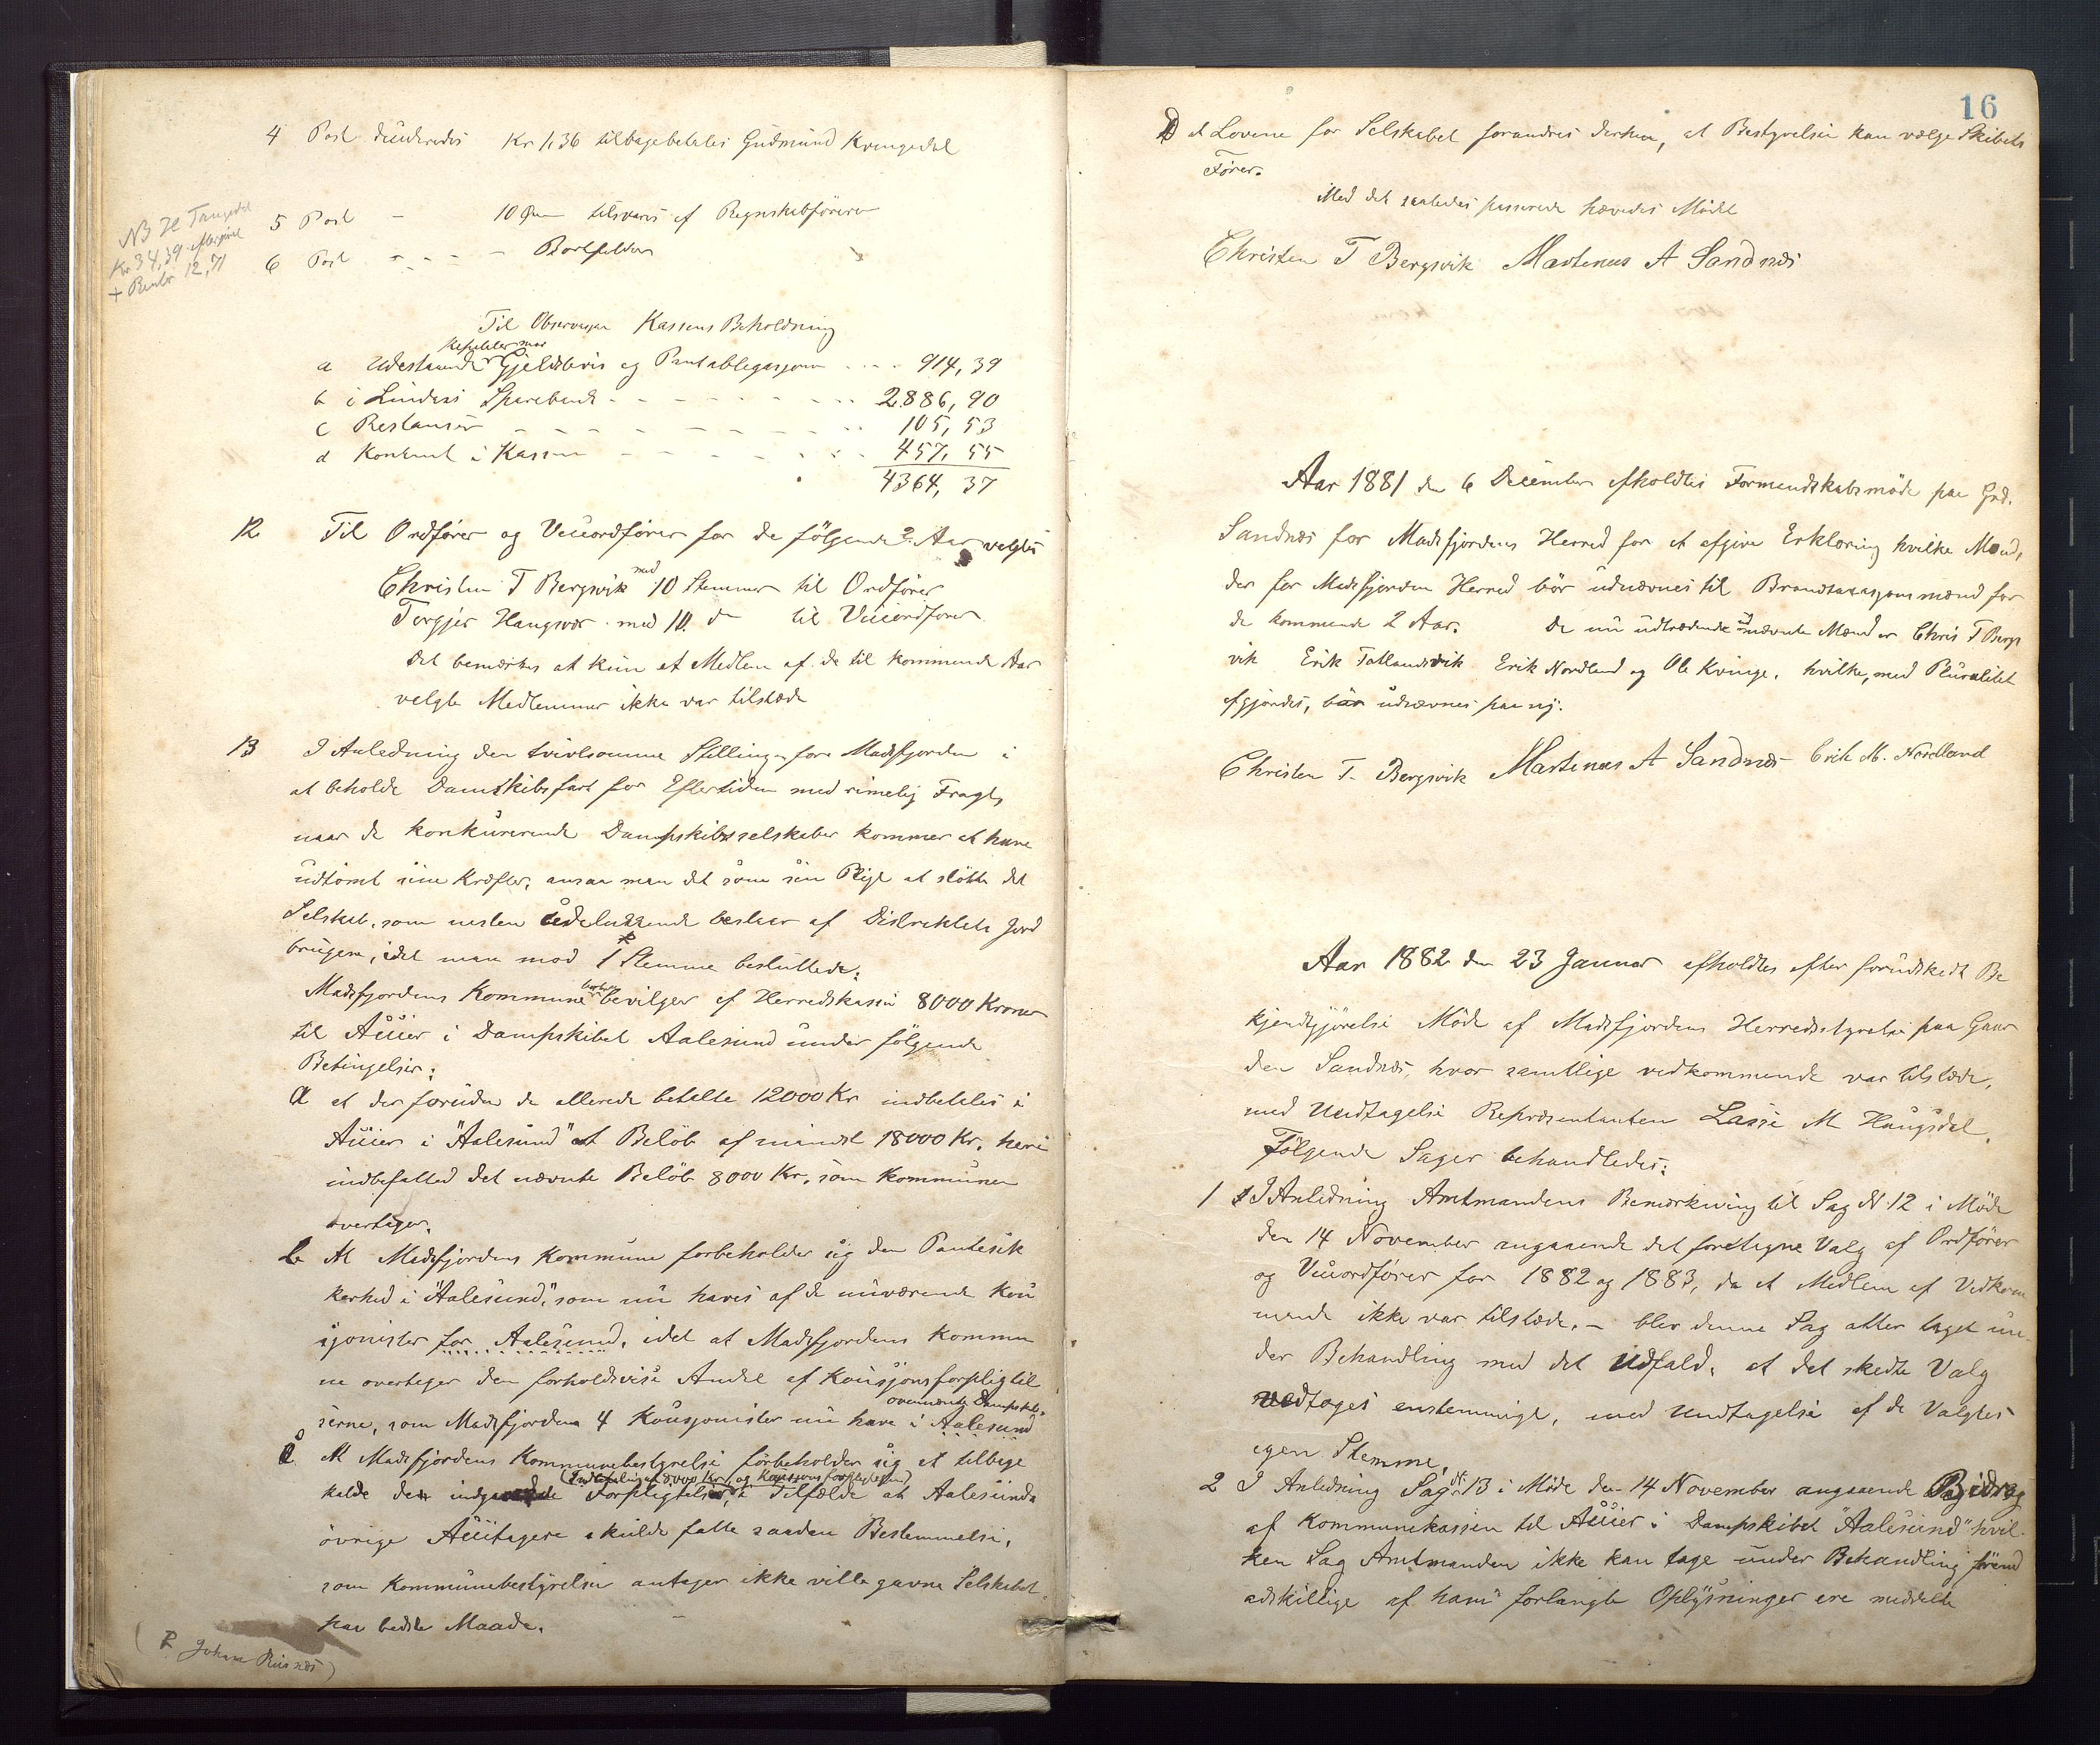 4 Post Kr 1,36 tilbagebetales Gudmund Kvingedal
NB H Tangedal
Kr 34,39 eftergivet
+ Renter 12,71
5 Post - 10 Øre tilsvares af Regnskabføreren
6 Post - - - - Bortfalder
Til Observasjon Kassens Beholdning
a Udestaaende Gjeldsbevis og Pantobligasjoner .... 914,39
b i Lindaas Sparebank - - - - 2886,90
c Restanser - - - - 105,53
d Kontant i Kassen - - - - 457,55
4364,37
12 Til Ordfører og Viceordfører for de følgende 2 Aar valgtes
Christen T Bergsvik med 10 Stemmer til Ordfører
Torgjer Haugsvær med 10 do til Viceordfører
Det bemærkes at kun et Medlem af de til kommende Aar
valgte Medlemmer ikke var tilstæde
13 I Anledning den tvivlsomme Stilling for Masfjorden i
at beholde Damskibsfart for Eftertiden med rimelig Fragt,
naar de konkurerende Dampskibsselskaber kommer at have
udtømt sine Kræfter, ansaa man det som sin Pligt at støtte det
Selskab, som nesten udelukkende bestaar af Distriktets Jord
brugere, idet man mod 1 * Stemme besluttede:
Masfjordens Kommune bevilger af Herredskassen 8000 Kroner
til Aktier i Dampskibet Aalesund under følgende
Betingelser:
a at der foruden de allerede betalte 12000 Kr indbetales i
Aktier i "Aalesund" et Beløb af mindst 18000 Kr, heri
indbefatted det nævnte Beløb 8000 Kr, som Kommunen
overtager.
b At Masfjordens Kommune forbeholder sig den Pantesik
kerhed i "Aalesund", som nu haves af de nuværende Kau
sjonister for Aalesund, idet at Masfjordens Kommu
ne overtager den forholdsvise Andel af Kausjonsforpligtel
serne, som Masfjordens 4 Kausjonister nu have i ovennævnte Dampskib Aalesund
c At Masfjordens Kommunebestyrelse forbeholder sig at tilbage
(Indbetaling af 8000 Kr, og Kausjonsforpligtelsen)
kalde den indgaaede Forpligtelse, i Tilfælde at Aalesunds
øvrige Aktietagere skulde fatte saadan Bestemmelse,
som Kommunebestyrelsen antager ikke ville gavne Selskabet
paa bedste Maade.
(* Johan Risnæs)
16
D at Lovene for Selskabet forandres derhen, at Bestyrelsen kan vælge Skibets
Fører.
Med det saaledes passerede hævedes Mødet
Christen T Bergsvik Martenus A Sandnæs
Aar 1881 den 6 December afholdtes Formendskabsmøde paa Grd.
Sandnæs for Masfjordens Herred for at afgive Erklæring hvilke Mænd,
der for Masfjorden Herred bør udnævnes til Brandtaxasjonsmænd for
de kommende 2 Aar. De nu udtrædende udnævnte Mænd er Chris T Bergs
vik Erik Tatlandsvik Erik Nordland og Ole Kvinge, hvilke, med Pluralitet
afgjordes, bør udnævnes paa ny.
Christen T. Bergsvik Martenus A Sandnæs Erik M. Nordland
Aar 1882 den 23 Januar afholdtes efter forudskedt Be
kjendtgjørelse Møde af Masfjordens Herredsstyrelse paa Gaar
den Sandnæs, hvor samtlige vedkommende var tilstæde,
med Undtagelse Repræsentanten Lasse M Haugsdal.
Følgende Sager behandledes:
1 I Anledning Amtmandens Bemærkning til Sag N: 12 i Møde
den 14 November angaaende det foretagne Valg af Ordfører
og Viceordfører for 1882 og 1883, da et Medlem af Vedkom
mende ikke var tilstæde. - blev denne Sag atter taget un
der Behandling med det Udfald, at det skedte Valg
vedtoges enstemmigt, med Undtagelse af de Valgtes
egen Stemme.
2 I Anledning Sag N: 13 i Møde den 14 November angaaende Bidrag
af Kommunekassen til Aktier i Dampskibet "Aalesund" hvil-
ken Sag Amtmanden ikke kan tage under Behandling førend
adskillige af ham forlangte Oplysninger ere meddelte